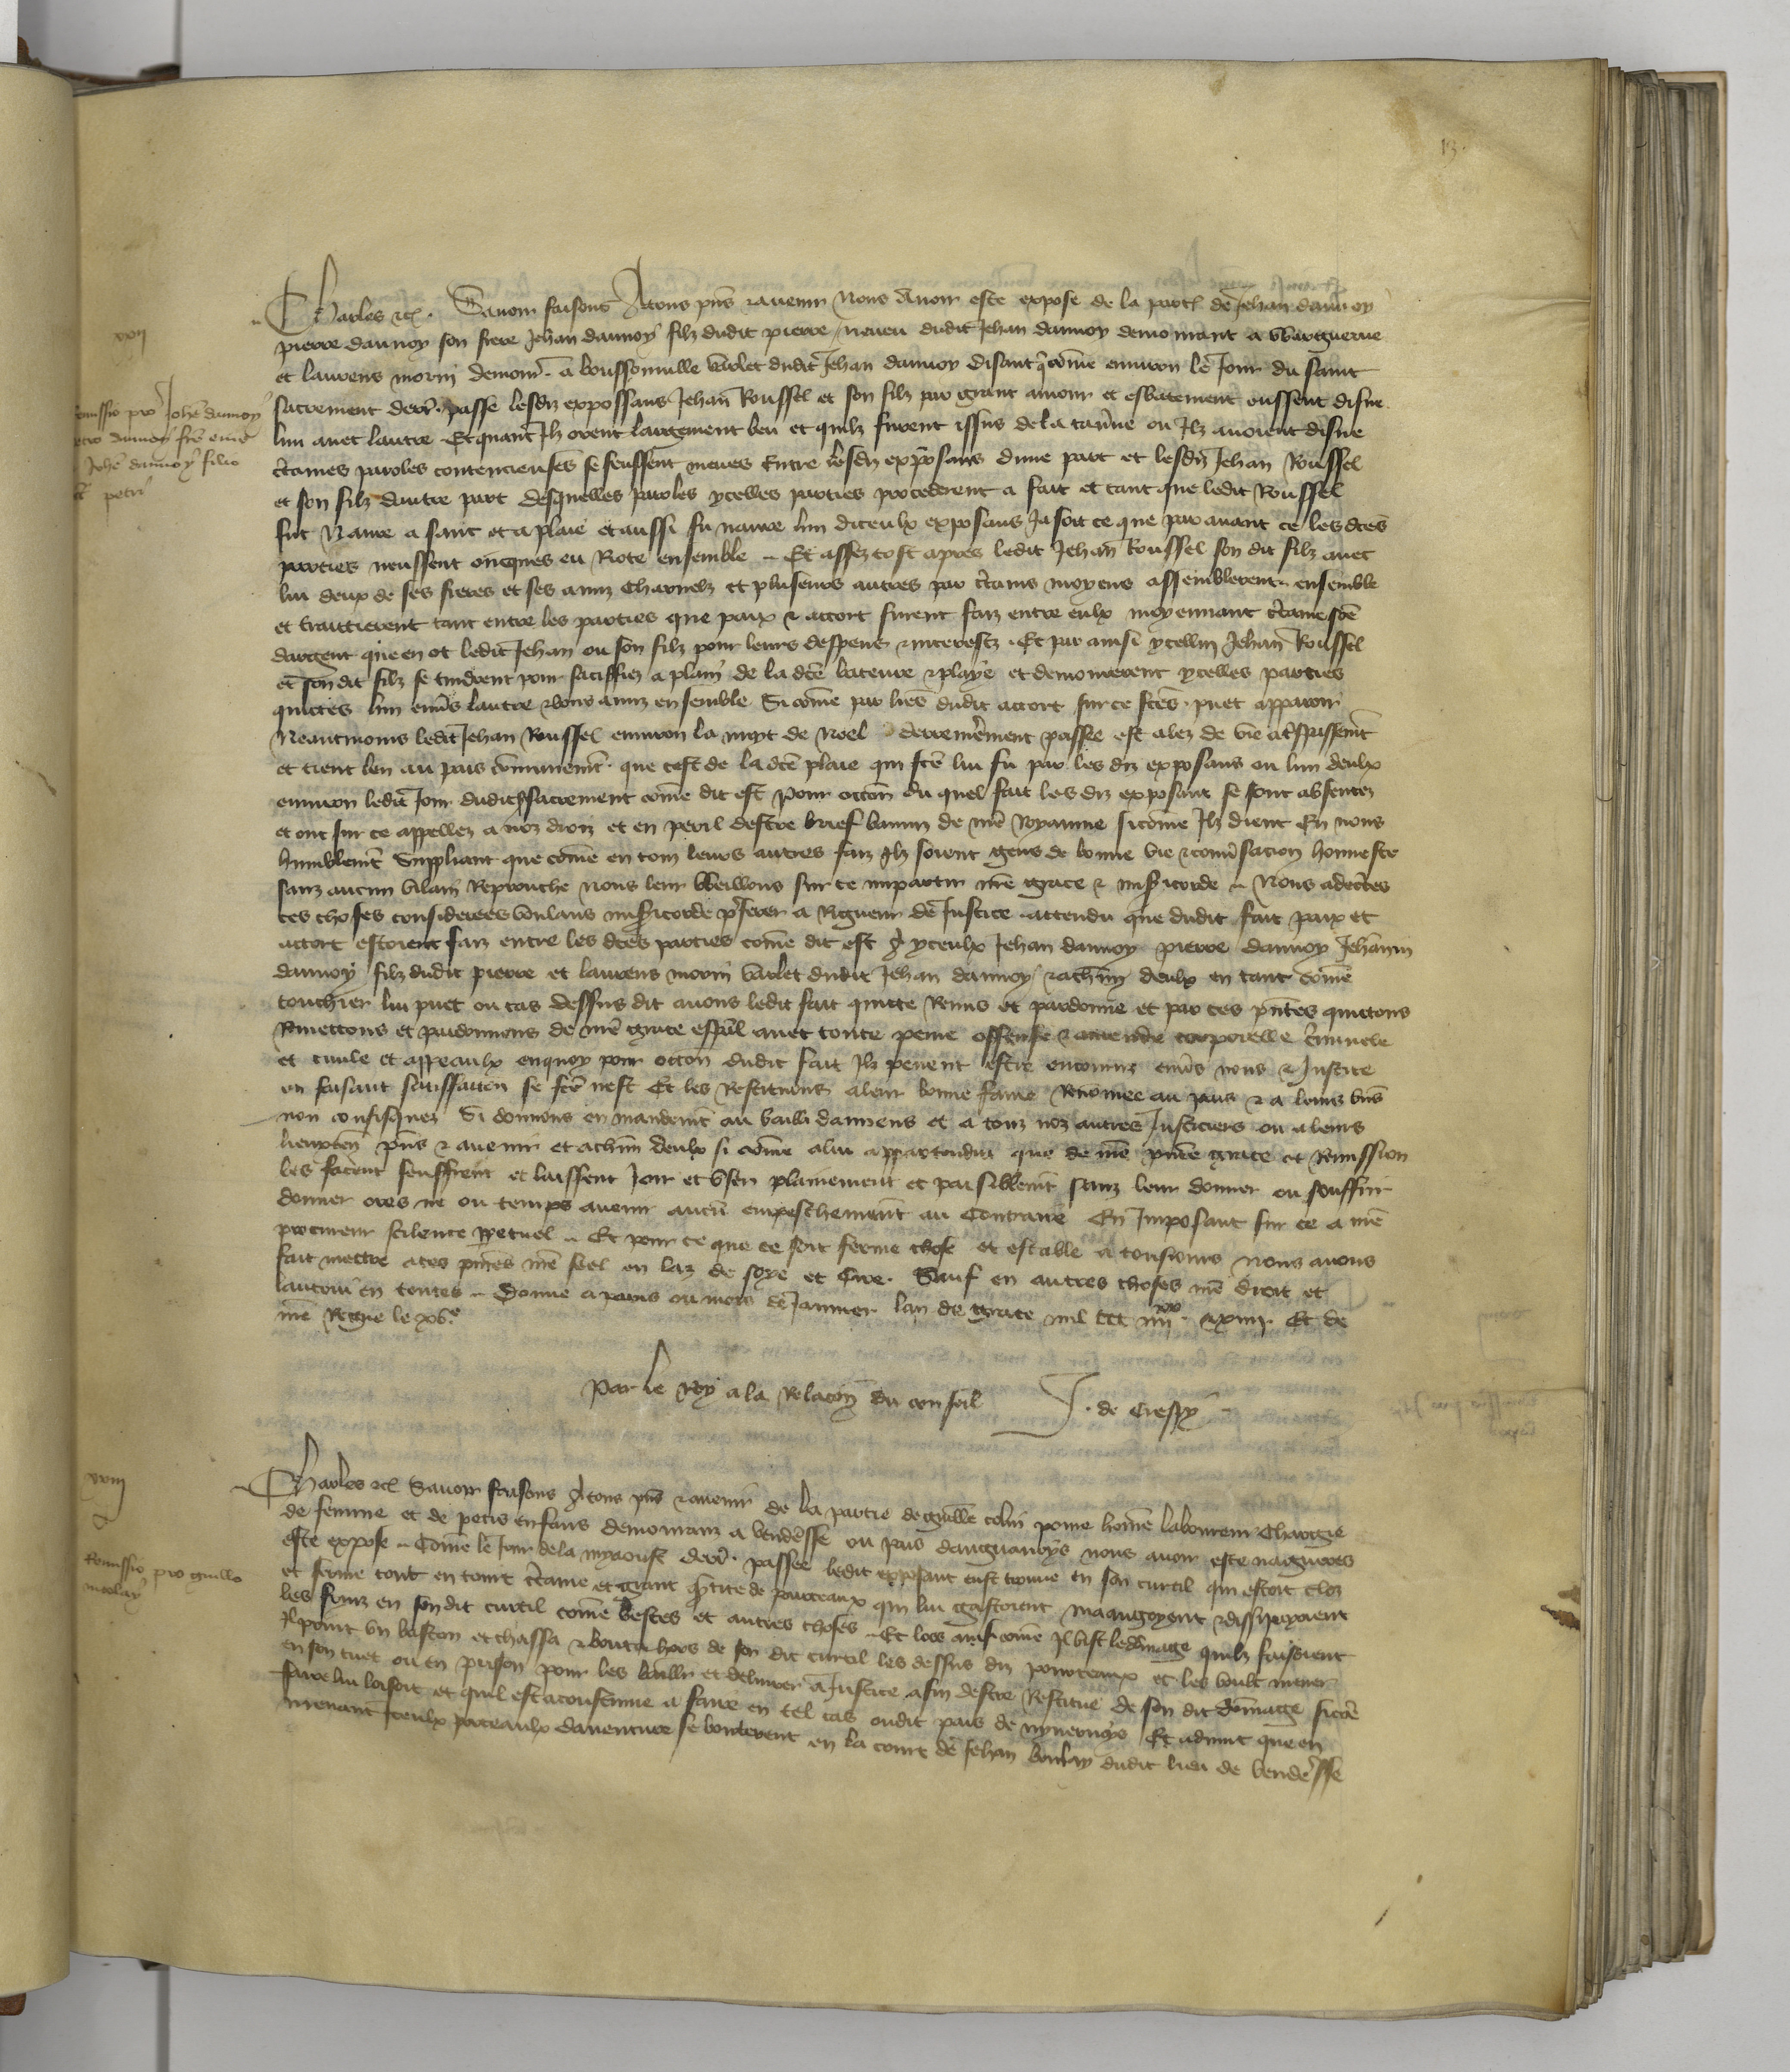 13
Charles etc. Savoir faisons A tous pns et avenir Nous Avoir este expose de la partie de Jehan daunoy
xvii
pierre daunoy son frere Jehan daunoy filz dudit pierre neveu dudit Jehan daunoy demourant a Warguerue
et laurens morin demour. a boussonville varlet dudit Jehan daunoy disant que come environ le Jour du saint
Remissio pro Johe daunoy
petro daunoy fre eius
Johe daunoy filio
petri
sacrement derr. passe lesdiz exposans Jehan Roussel et son filz par grant amour et esbatement eussent disne
lun avec lautre Et quant Ilz orent largement beu et quilz furent issus de la taverne ou Ilz avoient disne
ctaines paroles contencieuses se feussent meues Entre lesdiz exposans dune part et lesdiz Jehan Roussel
et son filz dautre part desquelles paroles ycelles parties procederent a fait et tant que ledit Roussel
fut Navre a sanc et a plaie et aussi fu navre lun diceulx exposans Ja soit ce que par avant ce les dctes
parties neussent oncques eu Riote ensemble Et assez tost apres ledit Jehan Roussel son dit filz avec
lui deux de ses freres et ses amiz Charnelz et pluseurs autres par ctains moyens assemblerent ensemble
et traittierent tant entre les parties que paix et accort furent faiz entre eulx moyennant ctaine sme
dargent que en ot ledit Jehan ou son filz pour leurs despens et interestz Et par ainsi ycellui Jehan Roussel
et son dit filz se tindrent pour satiffiez a plain de la dcte bateure et playe et demourerent ycelles parties
quictes lun envs lautre et bons amiz ensemble Si come par lres dudit accort sur ce fctes puet apparoir
Neantmoins ledit Jehan Roussel environ la nuyt de Noel derrenierement passee est alez de vie a trespassemt
et tient len au pais communemt que cest de la dcte plaie qui fcte lui fu par les diz exposans ou lun deulx
environ ledit Jour dudit sacrement come dit est Pour occon du quel fait les diz exposans se sont absentez
et ont sur ce appellez a noz droiz et en peril destre brief banniz de nre Royaume sicome Ilz dient En nous
humblemt Suppliant que come en touz leurs autres faiz Ilz soient gens de bonne vie et convsacion honneste
sanz aucun vilain Reprouche nous leur Vueillons sur ce impartir nre grace et misicorde Nous adctes
ces choses considerees voulans misicorde preferer a Rigueur de Justice attendu que dudit fait paix et
accort estoient faiz entre les dctes parties come dit est A yceulx Jehan daunoy pierre daunoy Jehannin
daunoy filz dudit pierre et laurens morin varlet dudit Jehan daunoy et a chun deulx en tant come
touchier lui puet ou cas dessus dit avons ledit fait quicte Remis et pardonne et par ces pntes quictons
Remettons et pardonnons de nre grace espal avec toute peine offense et amende corporelle criminele
et civile et appeaulx en quoy pour occon dudit fait Ilz pevent estre encouruz envs nous et Justice
en faisant satisfaccon se fcte nest Et les Restituons a leur bonne fame Renomee au pais et a leurs bns
non confisquez Si donnons en mandemt au bailli damiens et a touz noz autres Justiciers ou a leurs
lieuxten pns et avenir et a chun deulx si come a lui appartendra que de nre pnte grace et Remission
les facent seuffrent et laissent Joir et User plainement et paisiblemt sanz leur donner ou souffrir
donner ores ne ou temps avenir aucun empeschement au Contraire En Imposant sur ce a nre
procureur scilence ppetuel Et pour ce que ce soit ferme chose et estable a tousiours nous avons
fait mettre a ces pntes nre seel en laz de soye et Cire. Sauf en autres choses nre droit et
lautrui en toutes Donne a paris ou mois de Janvier lan de grace mil ccc iiiixx et xiiii Et de
nre Regne le xve
Par le Roy a la Relacon du conseil J. de Crespy
xviii
Charles etc Savoir faisons A tous pns et avenir de la partie de guille colin povre home laboureur Chargie
de femme et de petis enfans demourant a vendesse ou pais de nous avoir este naguieres
Remissio pro guillo
este expose Come le Jour de la derr. passee ledit exposant eust trouve en son curtil qui estoit cloz
et ferme tout en tour ctaine et grant qtite de pourceaux qui lui gastoient mangoyent et dissipoyent
les fruiz en son dit curtil come vesces et autres choses Et lors ainsi come Il vist le domage quilz faisoient
Il print un baston et chassa et bouta hors de son dit curtil les dessus diz pourceaux et les voult mener
en son tect ou en prison pour les baillr et delivrer a Justice afin destre Restitue de son dit domage sicoe
faire lui loisoit et quil est acoustume a faire en tel cas oudit pais de nyvernoys Et advint que en
menant Iceulx porceaulx daventure se bouterent en la court de Jehan boulay dudit lieu de vendesse